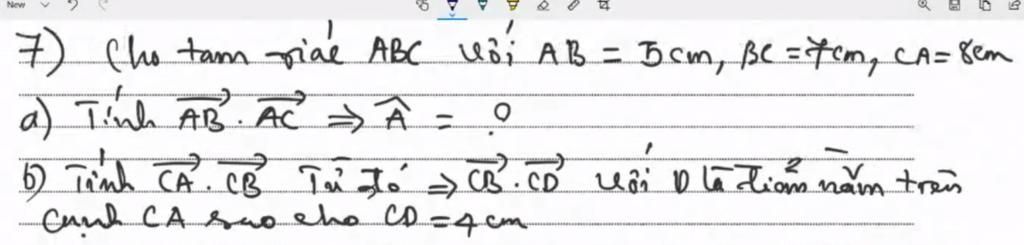 New
7) Cho tam giác ABC với AB = 5cm, BC = 7cm, CA = 8cm
a) Tính \overrightarrow{AB} . \overrightarrow{AC} ⇒ \widehat{A} = ?
b) Tính \overrightarrow{CA} . \overrightarrow{CB} Từ đó ⇒ \overrightarrow{CB} . \overrightarrow{CD} với D là điểm nằm trên
cạnh CA sao cho CD = 4cm